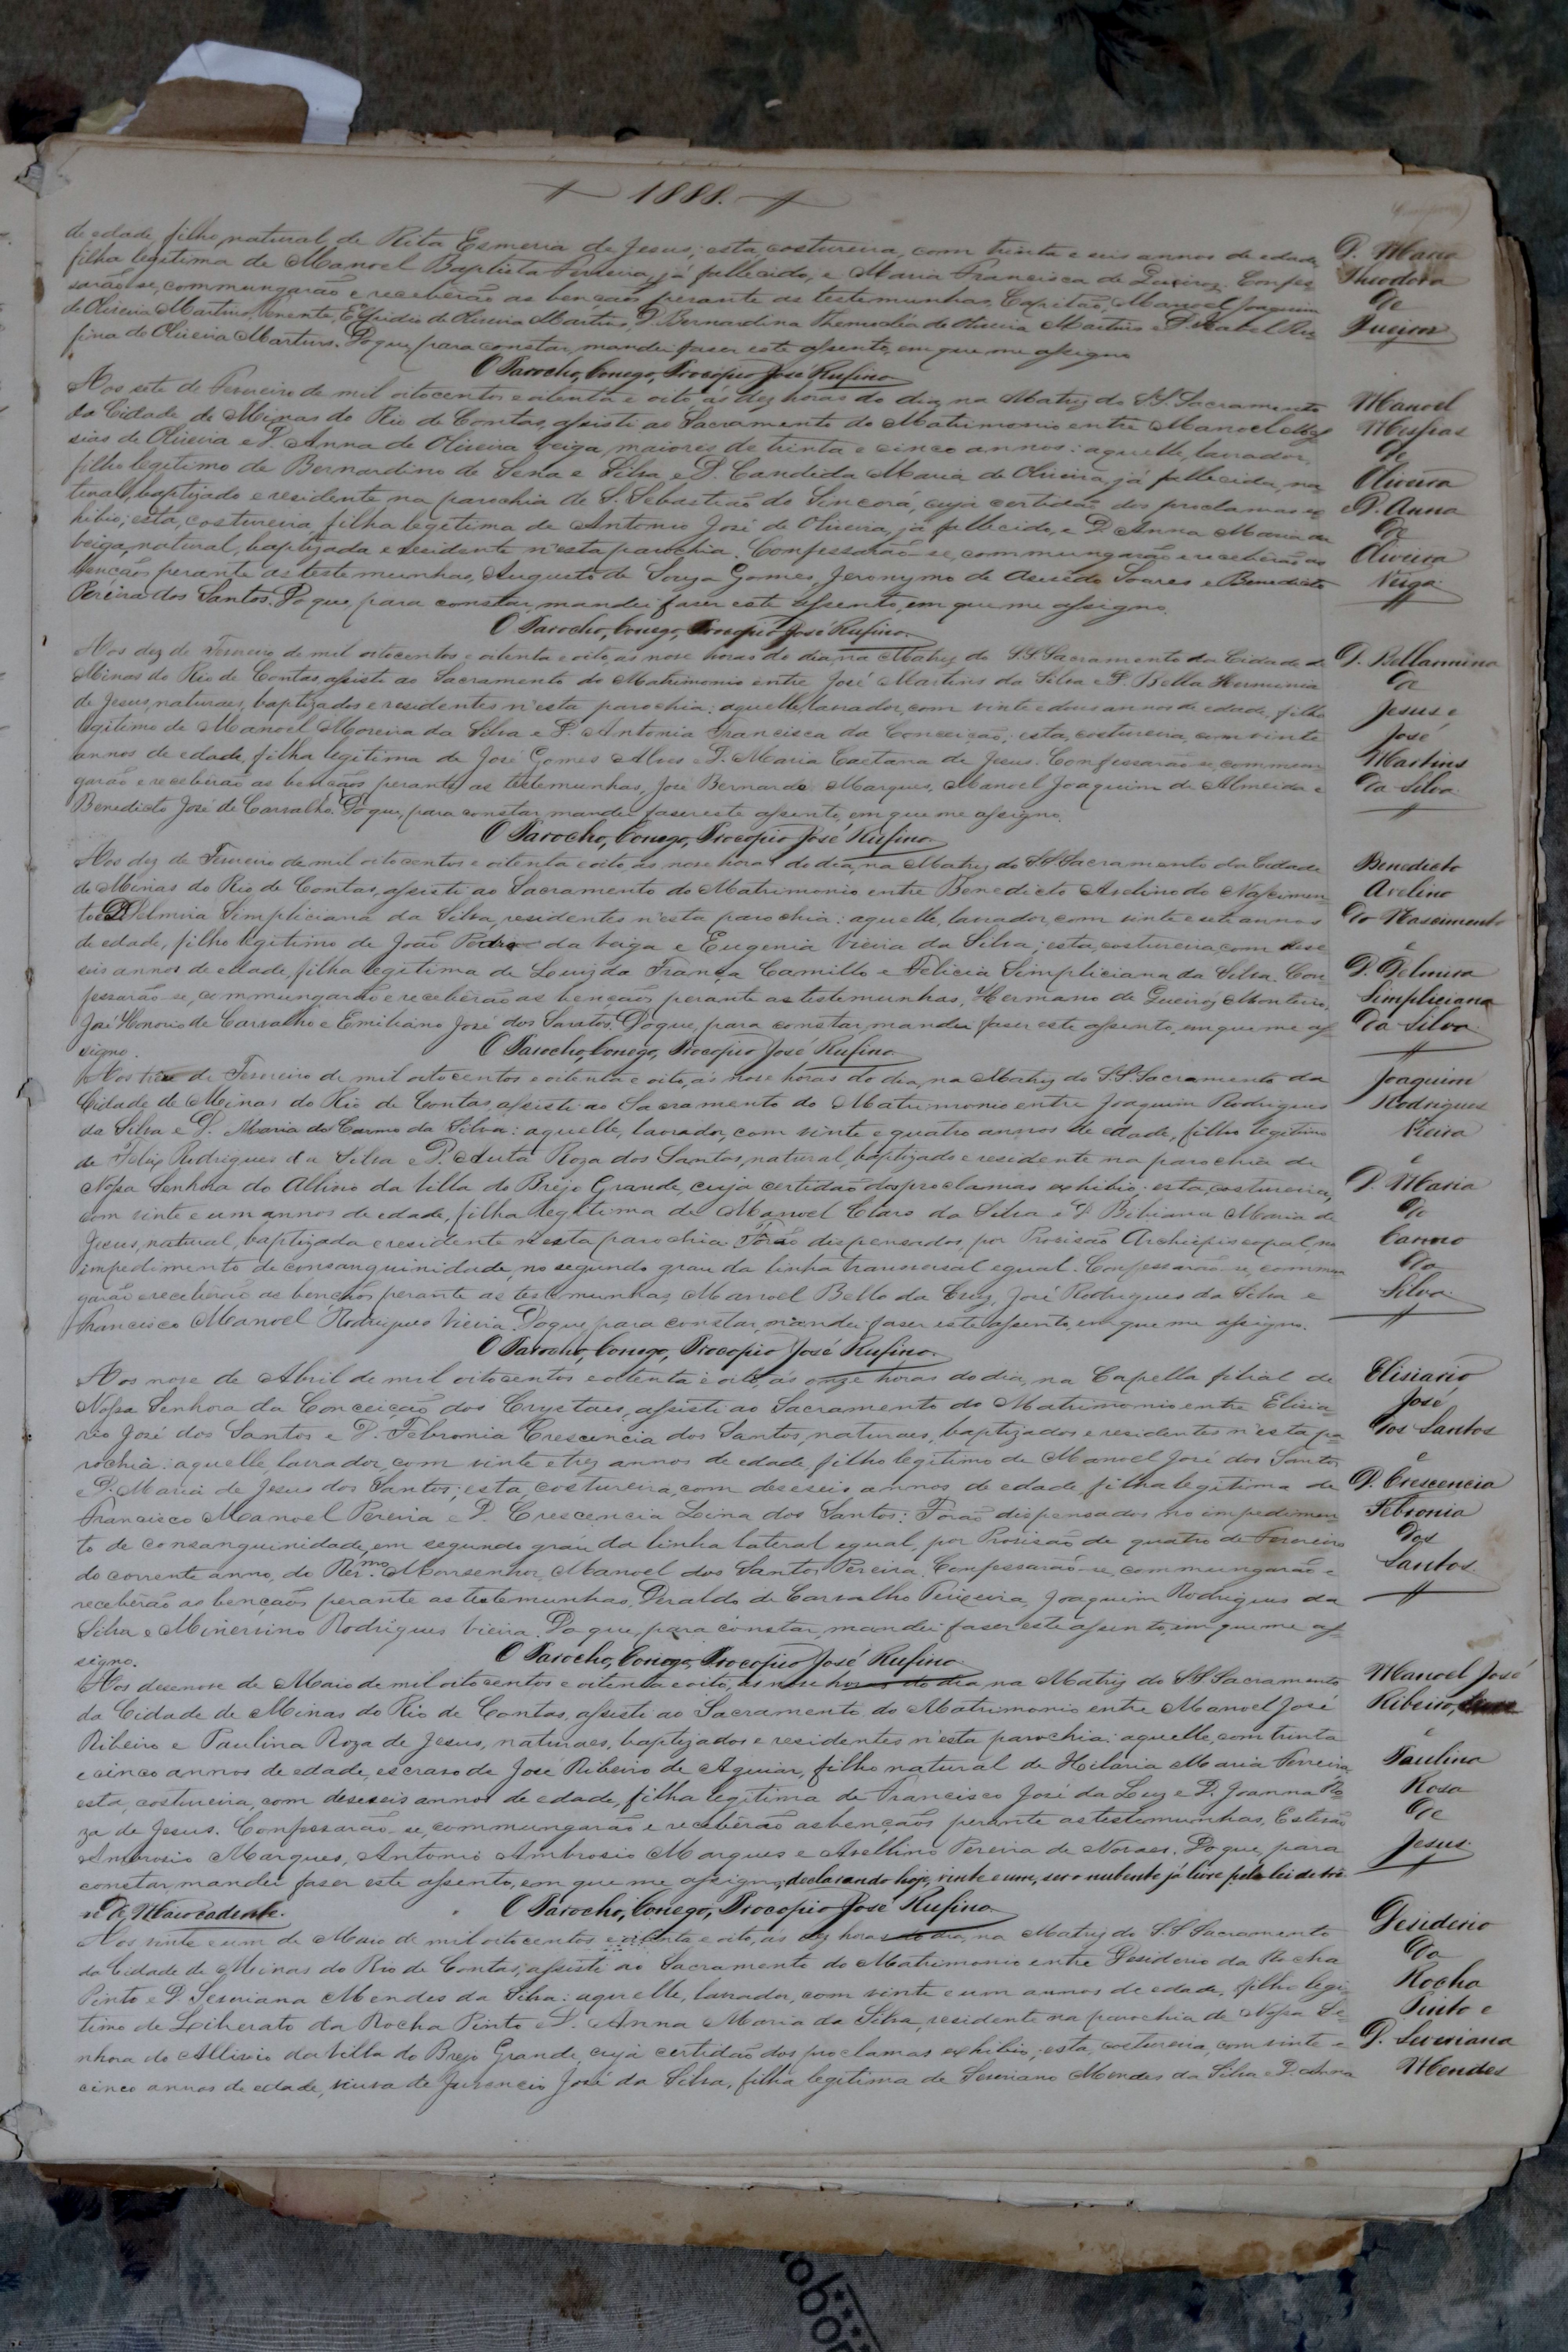 1888.
de edade, filho natural de Rita Esmeria de Jesus; esta, costureira, com trinta e seis annos de edade,
filha legitima de Manoel Baptista Ferreira, já fallecido, e Maria Francisca de Queiroz. Confes-
sarão-se, commungarão e receberão as bençaõs perante as testemunhas, Capitaõ, Manoel Joaquim
de Oliveira Martins, Tenente, Elpidio de Oliveira Martins, D. Bernardina de Oliveira Martins e D. Isabel Ru-
fina de Oliveira Martins. Do que, para constar, mandei faser este assento, em que me assigno
O Parocho, Conego, Procopio José Rufino.
D. Maria
Theodora
de
Queiroz
Aos sete de Fevereiro de mil oitocentos e oitenta e oito, ás dez horas do dia, na Matriz do S.S. Sacramento
da Cidade de Minas do Rio de Contas, assisti ao Sacramento do Matrimonio entre Manoel Mes-
sias de Oliveira e D. Anna de Oliveira Veiga, maiores de trinta e cinco annos: aquelle, lavrador,
filho legitimo de Bernardino de Sena e Silva e D. Candida Maria de Oliveira, já fallecida, na-
tural, baptizado e residente na parochia de S. Sebastiaõ do Sincorá, cuja certidaõ dos proclamas ex-
hibio; esta, costureira, filha legitima de Antonio José de Oliveira, já fallecido, e D. Anna Maria da
Veiga, natural, baptizada e residente n'esta parochia. Confessarão-se, commungarão e receberão as
bençaõs perante as testemunhas, Augusto de Souza Gomes, Jeronymo de Asevedo Soares e Benedicto
Pereira dos Santos. Do que, para constar, mandei faser este assento, em que me assigno.
O Parocho, Conego, Procopio José Rufino.
Manoel
Messias
de
Oliveira
e D. Anna
de
Oliveira
Veiga.
Aos dez de Fevereiro de mil oitocentos e oitenta e oito, ás nove horas do dia, na Matriz do S.S. Sacramento da Cidade de
Minas do Rio de Contas, assisti ao Sacramento do Matrimonio entre José Martins da Silva e D. Bella Herminia
de Jesus, naturaes, baptizados e residentes n'esta parochia: aquelle, lavrador, com vinte e dous annos de edade, filho
legitimo de Manoel Moreira da Silva e D. Antonia Francisca da Conceiçaõ; esta, costureira, com vinte
annos de edade, filha legitima de José Gomes Alves e D. Maria Caetana de Jesus. Confessarão-se, commun-
garão e receberão as bençaõs perante as testemunhas, José Bernardo Marques, Manoel Joaquim de Almeida e
Benedicto José de Carvalho. Do que, para constar, mandei faser este assento, em que me assigno.
O Parocho, Conego, Procopio José Rufino.
D. Bellarmina
de
Jesus e
José
Martins
da Silva.
Aos dez de Fevereiro de mil oitocentos e oitenta e oito, ás nove horas do dia, na Matriz do S.S. Sacramento da Cidade
de Minas do Rio de Contas, assisti ao Sacramento do Matrimonio entre Benedicto Avelino do Nascimen-
to e D. Delmira Simpliciana da Silva, residentes n'esta parochia: aquelle, lavrador, com vinte e sete annos
de edade, filho legitimo de João Pedro da Veiga e Eugenia Vieira da Silva; esta, costureira, com dese-
seis annos de edade, filha legitima de Luiz da França Camillo e Felicia Simpliciana da Silva. Con-
fessarão-se, commungarão e receberão as bençaõs perante as testemunhas, Hermano de Queiroz Monteiro,
José Honorio de Carvalho e Emiliano José dos Santos. Do que, para constar, mandei faser este assento, em que me as-
signo.
O Parocho, Conego, Procopio José Rufino.
Benedicto
Avelino
do Nascimento
e
D. Delmira
Simpliciana
da Silva.
Aos de Fevereiro de mil oitocentos e oitenta e oito, ás nove horas do dia, na Matriz do S.S. Sacramento da
Cidade de Minas do Rio de Contas, assisti ao Sacramento do Matrimonio entre Joaquim Rodrigues
da Silva e D. Maria do Carmo da Silva: aquelle, lavrador, com vinte e quatro annos de edade, filho legitimo
de Felix Rodrigues da Silva e D. Auta Roza dos Santos, natural, baptizado e residente na parochia de
Nossa Senhora do Allivio da Villa do Brejo Grande, cuja certidaõ dos proclamas exhibio; esta, costureira,
com vinte e um annos de edade, filha legitima de Manoel Claro da Silva e D. Bibiana Maria de
Jesus, natural, baptizada e residente n'esta parochia. Foraõ dispensados, por Provisaõ Archiepiscopal, no
impedimento de consanguinidade, no segundo grau da linha transversal egual. Confessarão-se, commun-
garão e receberão as bençaõs perante as testemunhas, Manoel Bello da Cruz, José Rodrigues da Silva e
Francisco Manoel Rodrigues Vieira. Do que, para constar, mandei faser este assento, em que me assigno.
O Parocho, Conego, Procopio José Rufino.
Joaquim
Rodrigues
Vieira
e
D. Maria
do
Carmo
da
Silva.
Aos nove de Abril de mil oitocentos e oitenta e oito, ás onze horas do dia, na Capella filial de
Nossa Senhora da Conceiçaõ dos Crystaes, assisti ao Sacramento do Matrimonio entre Elisia-
rio José dos Santos e D. Febronia Crescencia dos Santos, naturaes, baptizados e residentes n'esta pa-
rochia: aquelle, lavrador, com vinte e trez annos de edade, filho legitimo de Manoel José dos Santos
e D. Maria de Jesus dos Santos; esta, costureira, com deseseis annos de edade, filha legitima de
Francisco Manoel Pereira e D. Crescencia Lina dos Santos: Foraõ dispensados no impedimen-
to de consanguinidade, em segundo gráu da linha lateral egual, por Provisaõ de quatro de Fevereiro
do corrente anno, do Rev.mo Monsenhor, Manoel dos Santos Pereira. Confessarão-se, commungarão e
receberão as bençaõs perante as testemunhas, Deraldo de Carvalho Teixeira, Joaquim Rodrigues da
Silva e Minervino Rodrigues Vieira. Do que, para constar, mandei faser este assento, em que me as-
signo.
O Parocho, Conego, Procopio José Rufino.
Elisiario
José
dos Santos
e
D. Crescencia
Febronia
dos
Santos.
Aos desenove de Maio de mil oitocentos e oitenta e oito, ás nove horas do dia na Matriz do S.S. Sacramento
da Cidade de Minas do Rio de Contas, assisti ao Sacramento do Matrimonio entre Manoel José
Ribeiro e Paulina Roza de Jesus, naturaes, baptizados e residentes n'esta parochia: aquelle, com trinta
e cinco annos de edade, escravo de José Ribeiro de Aguiar, filho natural de Hilaria Maria Ferreira;
esta, costureira, com deseseis annos de edade, filha legitima de Francisco José da Luz e D. Joanna Ro-
za de Jesus. Confessarão-se, commungarão e receberão as bençaõs perante as testemunhas, Estevaõ
Ambrosio Marques, Antonio Ambrosio Marques e Avellino Pereira de Novaes. Do que, para
constar, mandei faser este assento, em que me assigno, declarando hoje, vinte e um, ser o nubente já livre pela lei de tre-
se de Maio cadente.
O Parocho, Conego, Procopio José Rufino.
Manoel José
Ribeiro,
e
Paulina
Rosa
de
Jesus.
Aos vinte e um de Maio de mil oitocentos e oitenta e oito, ás dez horas do dia, na Matriz do S.S. Sacramento
da Cidade de Minas do Rio de Contas, assisti ao Sacramento do Matrimonio entre Desiderio da Rocha
Pinto e D. Severiana Mendes da Silva: aquelle, lavrador, com vinte e um annos de edade, filho legi-
timo de Liberato da Rocha Pinto e D. Anna Maria da Silva, residente na parochia de Nossa Se-
nhora do Allivio da Villa do Brejo Grande, cuja certidaõ dos proclamas exhibio; esta, costureira, com vinte e
cinco annos de edade, viuva de Juvencio José da Silva, filha legitima de Severiano Mendes da Silva e D. Anna
Desiderio
da
Rocha
Pinto e
D. Severiana
Mendes